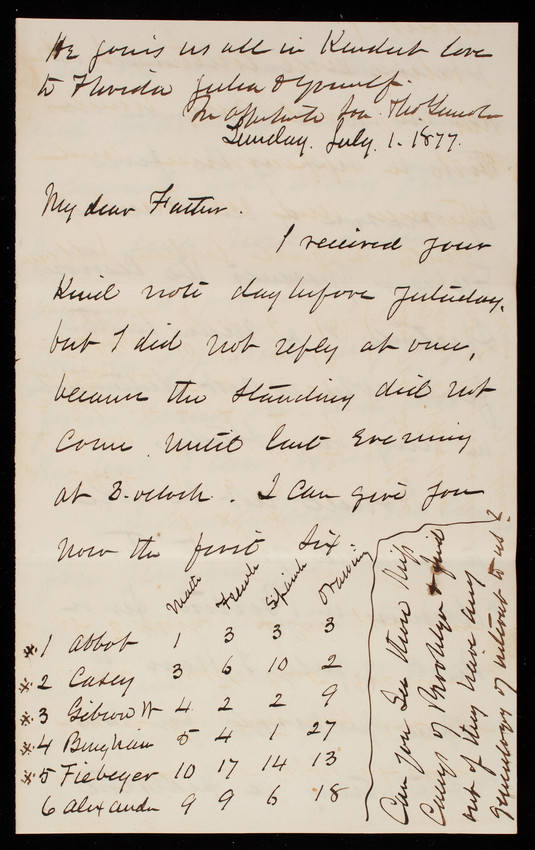 He joins us all in kindest love
to Florida Julia & yourself.
In affectionate son. Thos.
Sunday. July. 1. 1877.
My dear Father.
I received your
kind note day before yesterday.
but I did not reply at once,
because the standing did not
come until last evening
at 3-oclock. I can give you
now the first six:
Math French Spanish Drawing
*1 Abbot 1 3 3 3
*2 Casey 3 6 10 2
*3 Gibson W 4 2 2 9
*4 Bingham 5 4 1 27
*5 Fiebeger 10 17 14 13
6 Alexander 9 9 6 18
Can you see those Miss
Caseys of Brooklyn & find
out if they have any
genealogy of interest to us?